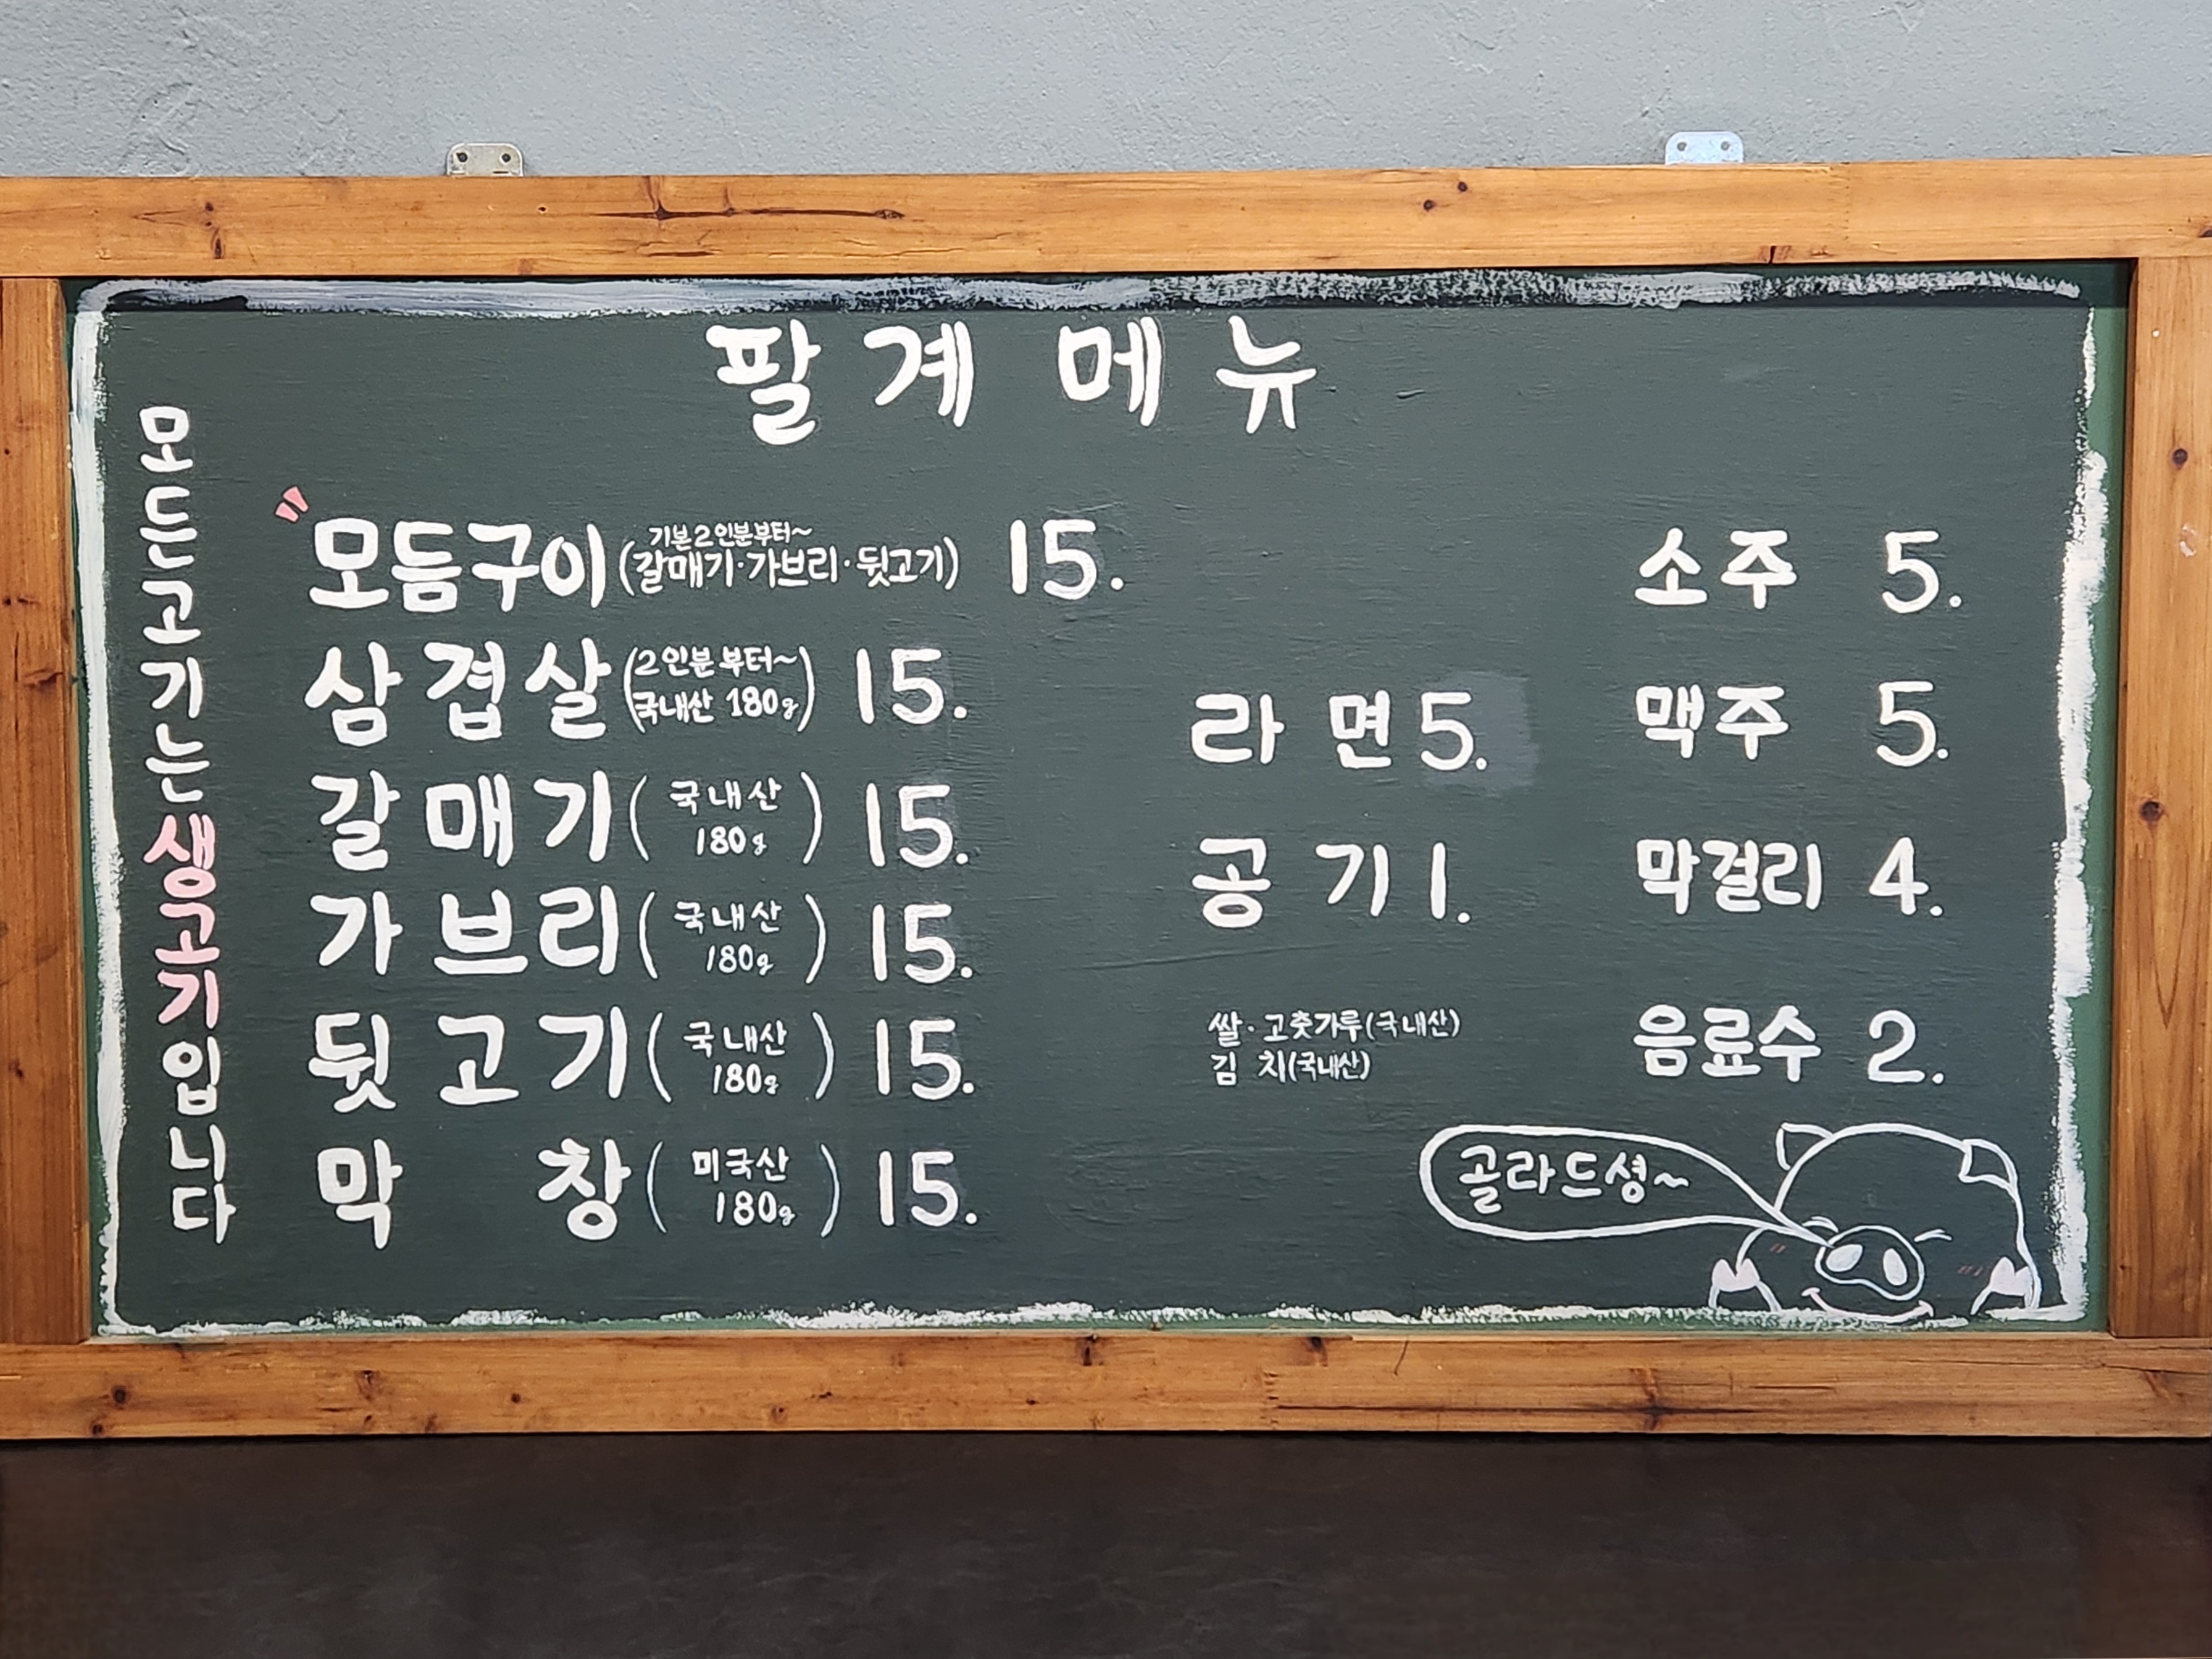 팔계 메뉴
모든고기는생고기입니다
모듬구이(갈매기·가브리·뒷고기) 15.
기본2인분부터~
삼겹살(2인분부터~ 15.
국내산 180g)
갈매기(국내산 15.
180g)
가브리(국내산 15.
180g)
뒷고기(국내산 15.
180g)
막창(미국산 15.
180g)
라면 5.
공기 1.
쌀·고춧가루(국내산)
김치(국내산)
소주 5.
맥주 5.
막걸리 4.
음료수 2.
골라드셩~